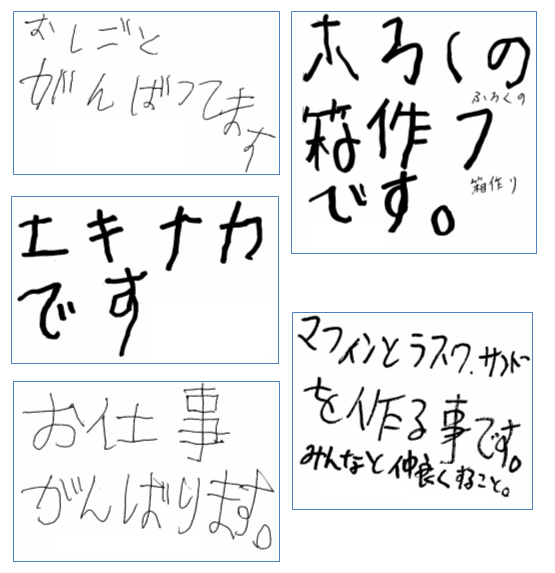 おしごと
がんばってます
エキナカ
です
お仕事
がんばります。
ふろくの
ふろくの
箱作り
箱作り
です。
マフィンとラスク、サンドー
を作る事です。
みんなと仲良くすること。